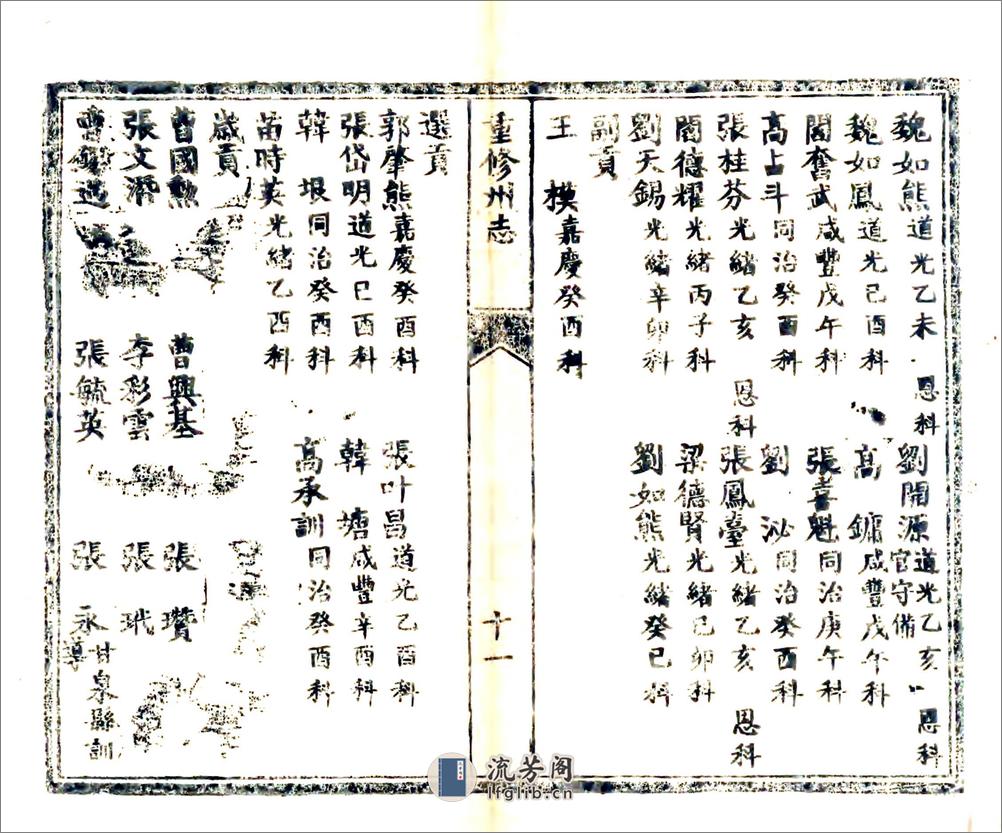 魏如熊道光乙未恩科　劉開源道光乙亥恩科官守備
魏如鳳道光己酉科　高　鏞咸豐戊午科
閻奮武咸豐戊午科　張喜魁同治庚午科
高占斗同治癸酉科　劉　泌同治癸酉科
張桂芬光緒乙亥恩科　張鳳臺光緒乙亥恩科
閻德耀光緒丙子科　梁德賢光緒己卯科
劉天錫光緒辛卯科　劉如熊光緒癸巳科
副貢
王　樸嘉慶癸酉科
重修州志
十一
選貢
郭肇熊嘉慶癸酉科　張叶昌道光乙酉科
張岱明道光己酉科　韓　塘咸豐辛酉科
韓　垠同治癸酉科　高承訓同治癸酉科
苗時英光緒乙酉科
歲貢
曹國勲　曹興基　張　瓚
張文　李彩雲　張　玳
張毓英　張　永甘泉縣訓導
流芳阁
lfglib.cn